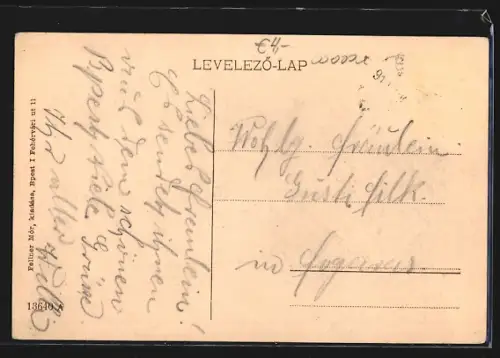 €4,-
LEVELEZŐ-LAP
Liebes Fräulein!
Es sendet ihnen
und dem schönen
viele Grüsse
Ihr alter
Wohlg. Fräulein
Gusti Silk.
in Fogaras
Fellner Mór, kiadása, Bpest I Fehérvári ut 11
13640